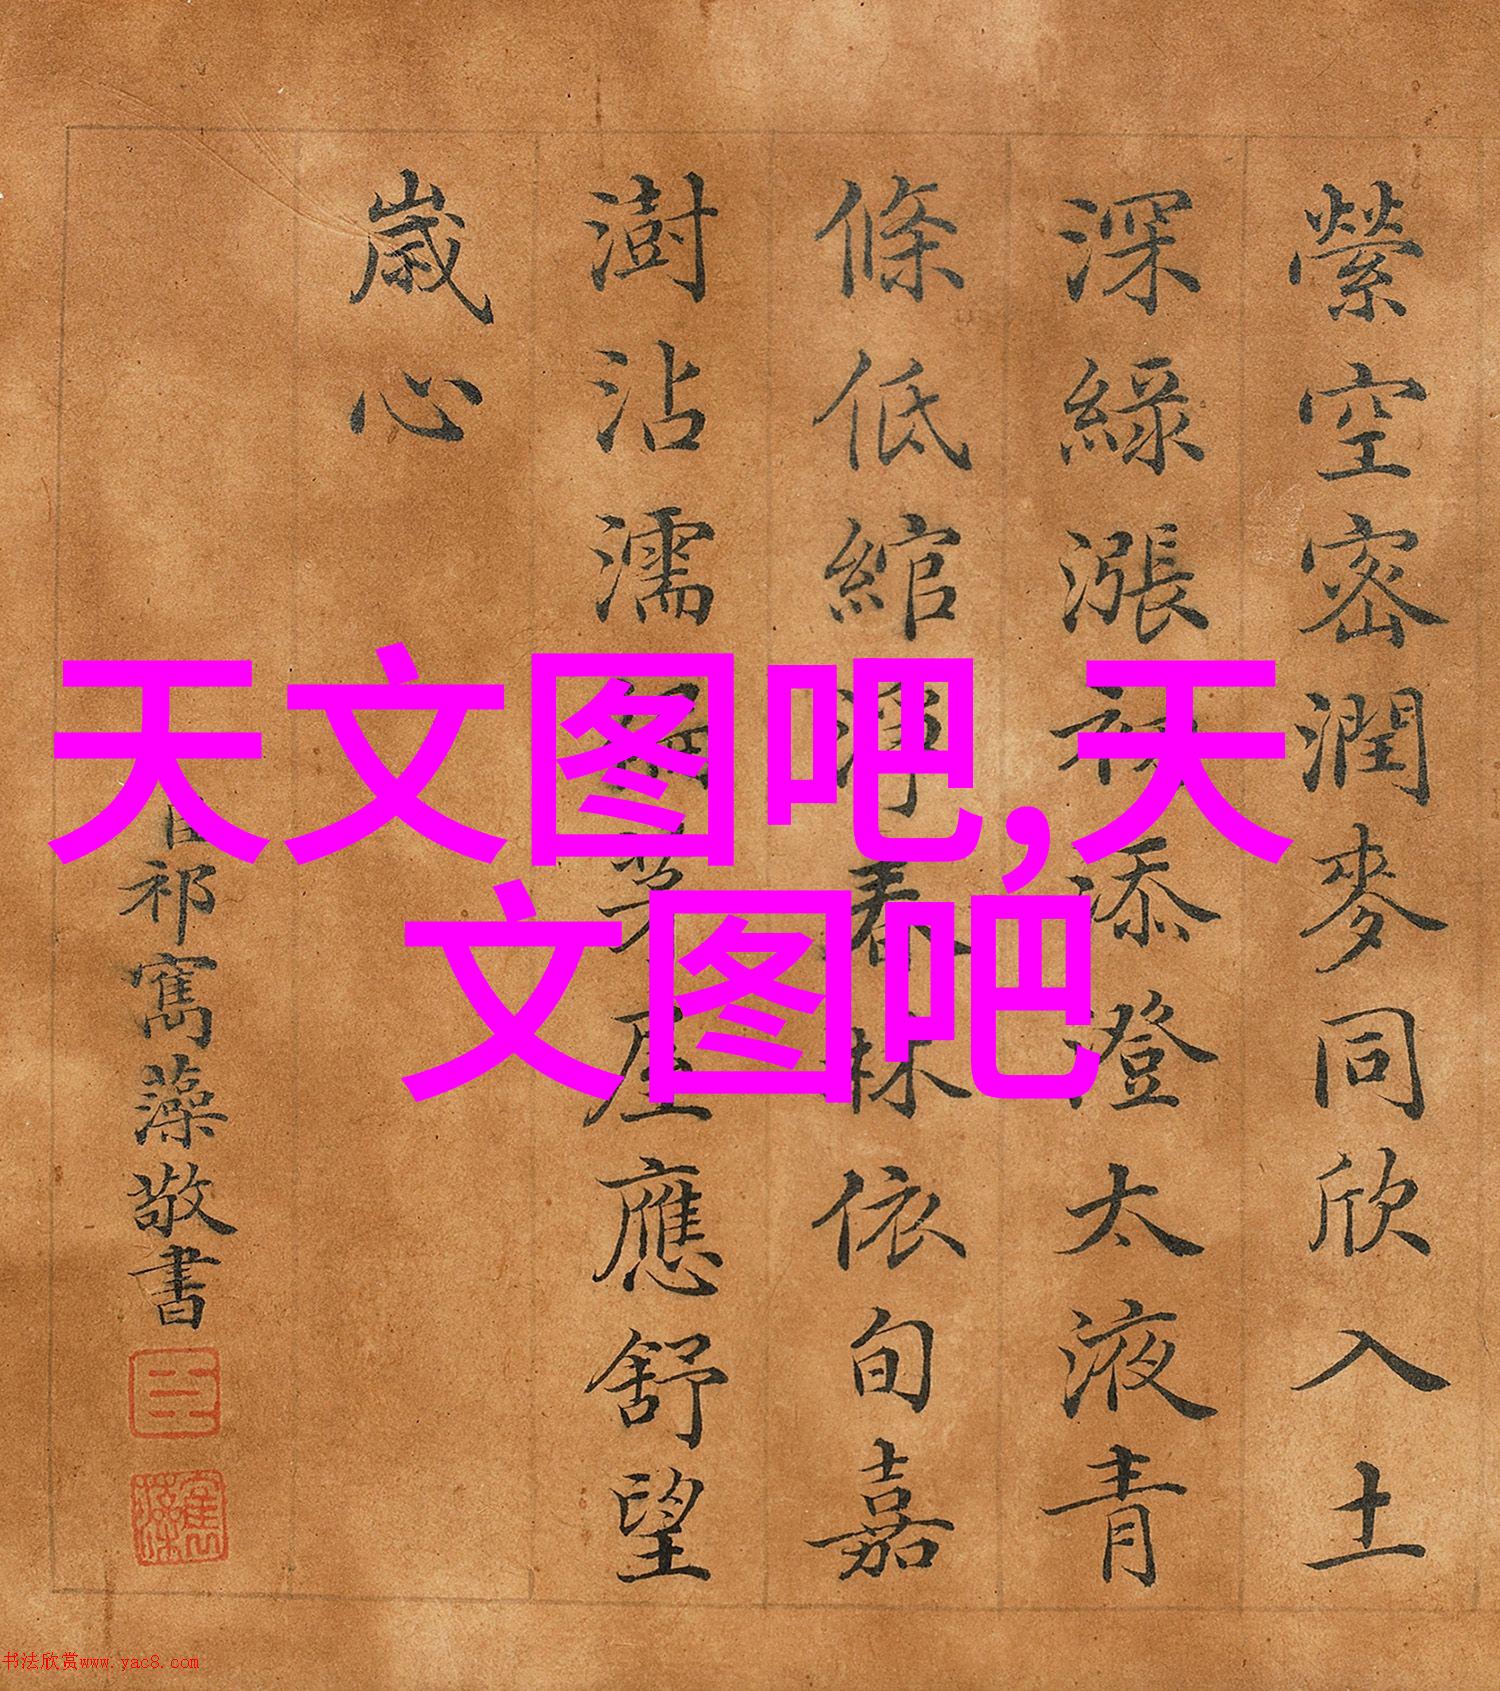 縈空密潤麥同欣入土
深綠漲初添澄太液青
條低綰淨春林依旬嘉
澍沾濡茅屋應舒望
歲心
臣祁寯藻敬書
天文图吧,天
文图吧
书法欣赏www.yac8.com